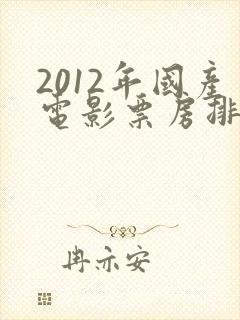 2012年國產
電影票房排
冉亦安